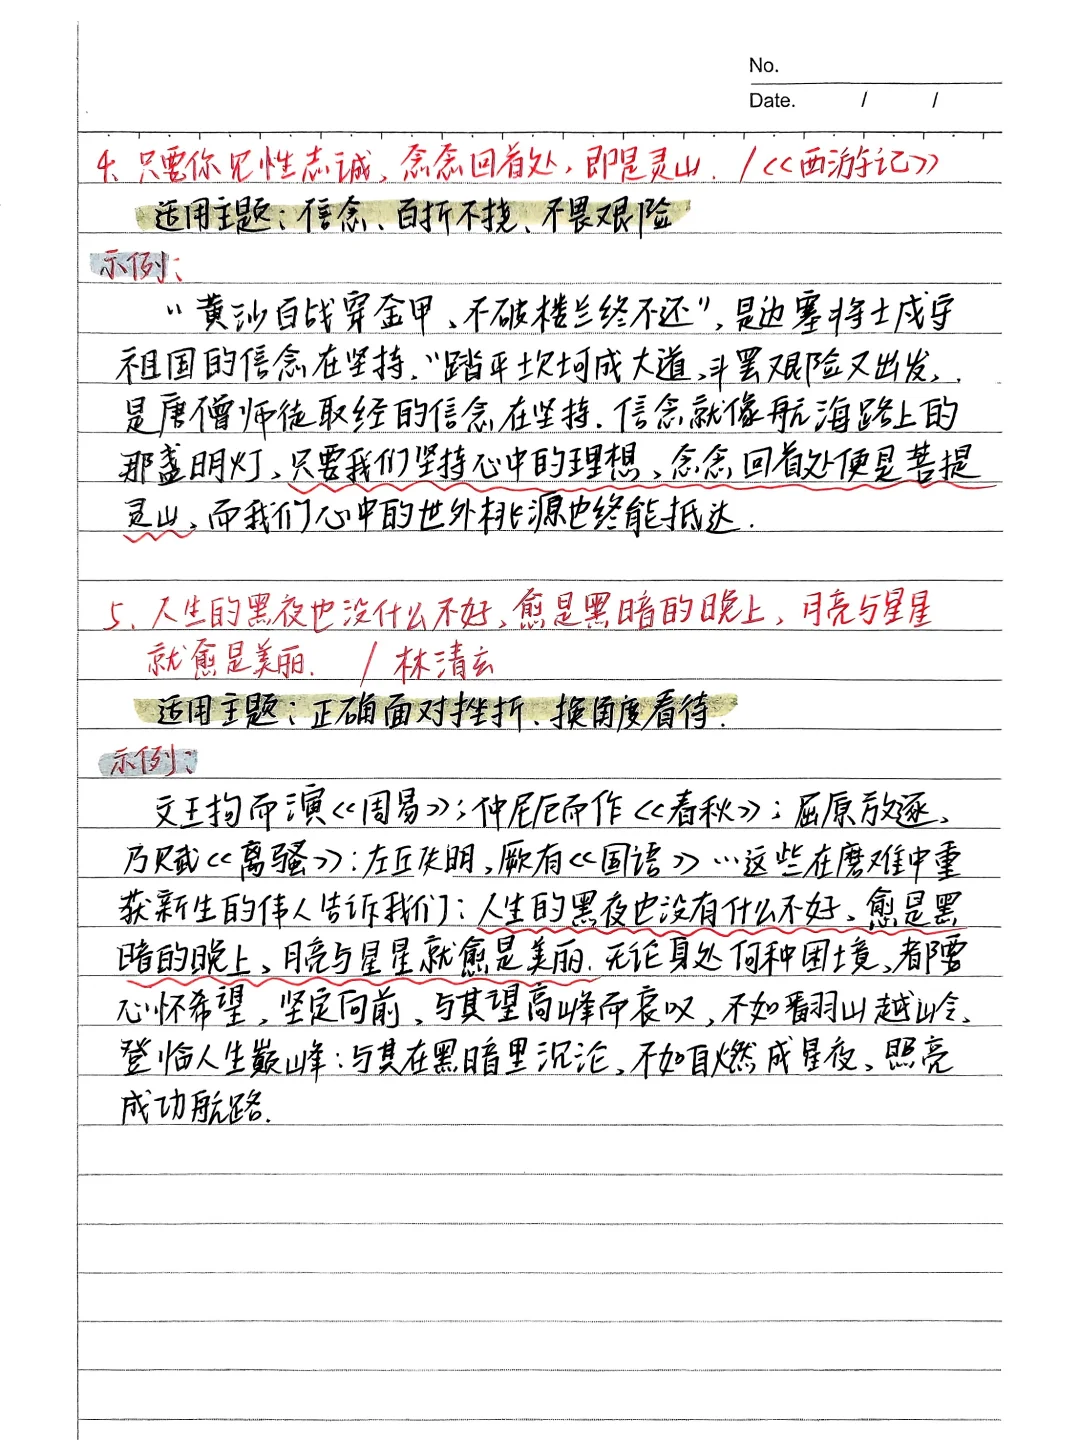 No.
Date. / /
4、只要你见性志诚，念念回首处，即是灵山. /《西游记》
适用主题：信念、百折不挠、不畏艰险
示例：
“黄沙百战穿金甲，不破楼兰终不还”，是边塞将士戍守
祖国的信念在坚持，“踏平坎坷成大道，斗罢艰险又出发，
是唐僧师徒取经的信念在坚持．信念就像航海路上的
那盏明灯，只要我们坚持心中的理想，念念回首处便是菩提
灵山，而我们心中的世外桃源也终能抵达．
5、人生的黑夜也没什么不好，愈是黑暗的晚上，月亮与星星
就愈是美丽． / 林清玄
适用主题：正确面对挫折、换角度看待．
示例：
文王拘而演《周易》；仲尼厄而作《春秋》；屈原放逐，
乃赋《离骚》；左丘失明，厥有《国语》…这些在磨难中重
获新生的伟人告诉我们：人生的黑夜也没有什么不好，愈是黑
暗的晚上，月亮与星星就愈是美丽．无论身处何种困境，都要
心怀希望，坚定向前，与其望高峰而哀叹，不如翻山越岭，
登临人生巅峰；与其在黑暗里沉沦，不如自燃成星夜，照亮
成功航路．